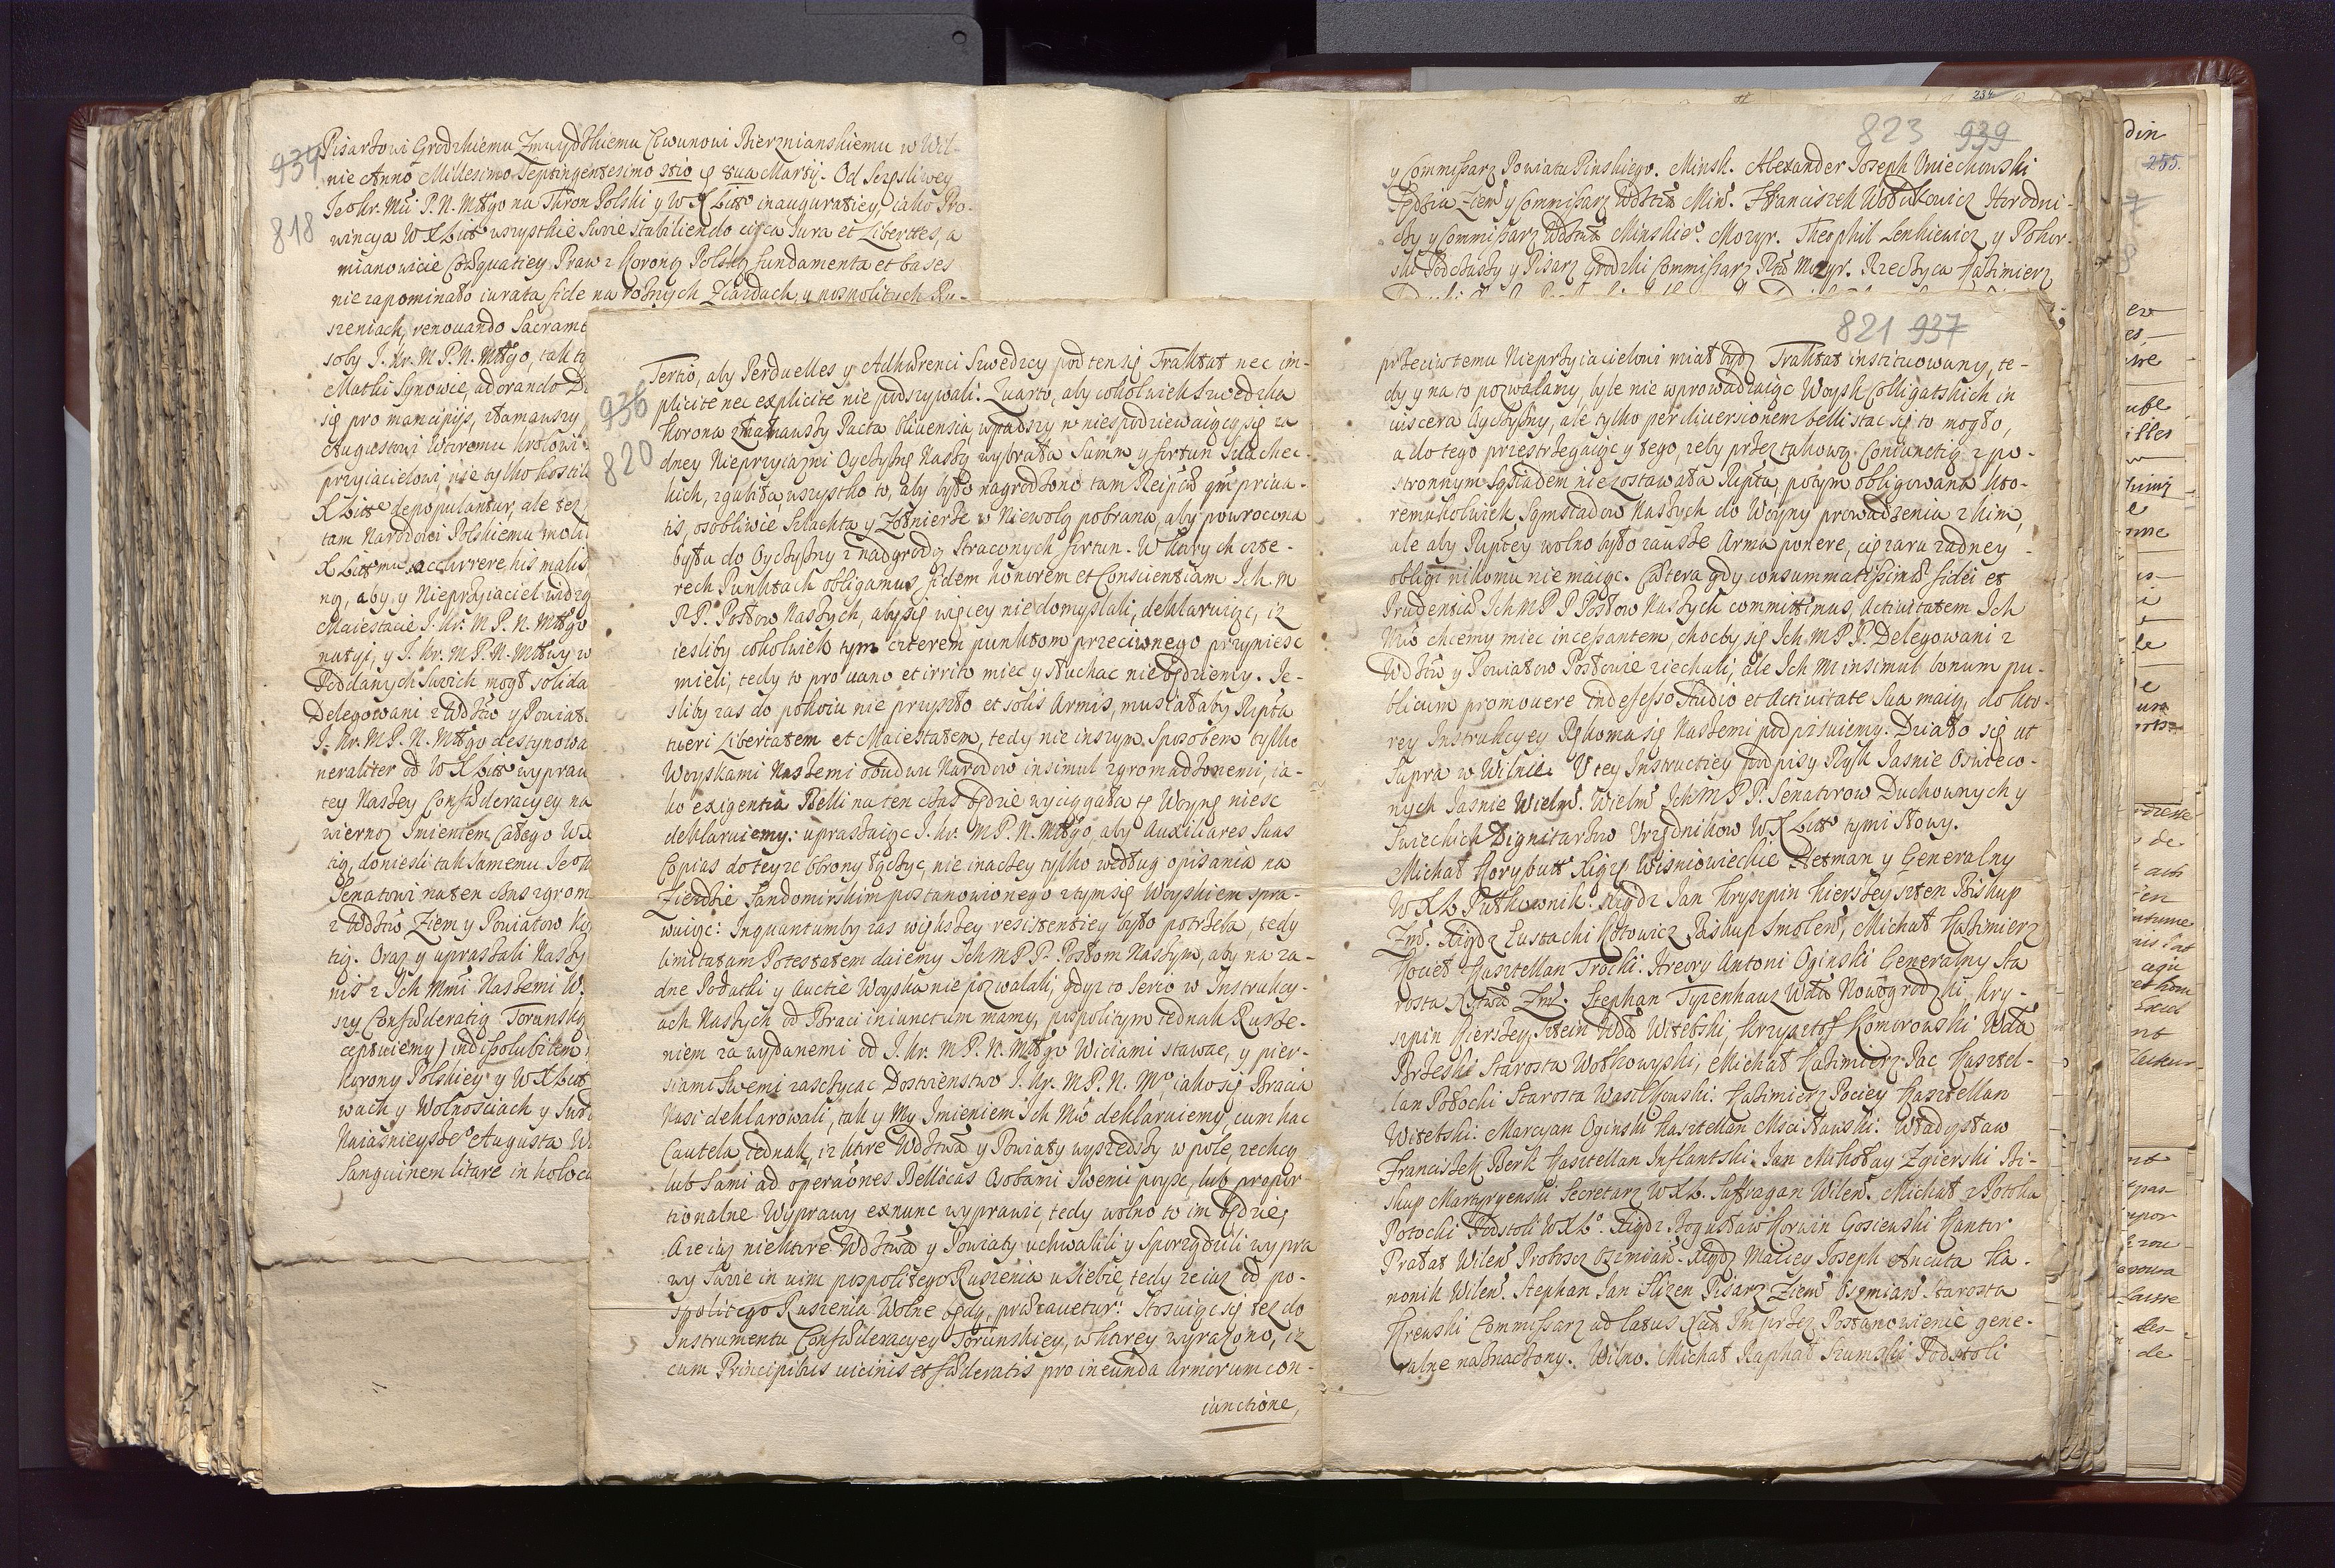 934
818
Pisarzowi Grodzkiemu Zmuydzkiemu Ciwunowi Bierznianskiemu w Wil-
nie Anno Millesimo Septingentesimo 4tio Martij. Od Sczesliwey
Jeo Kr. Mci P. N. Młgo na Thron Polski y W X Litto inauguratiey, iako Pro-
wincya W X Litto wszystkie Swoie Stabiliendo circa Jura et Libertes, a
mianowicie Coæquatiey Praw z Koroną Polską fundamenta et bases
nie zapominało iurata fide na rożnych Ziazdach, y pospolitych Ru-
szeniach, renouando Sacrame
soby J. Kr. M P. N. Młgo, tak t
Matki Synowie, adorando D
się pro mancipijs, złamawszy
Augustowi Wtoremu Krolowi
przyiacielowi, nie tylko hostil
X Litto depopulantur, ale tez
tam Narodowi Polskiemu moli
X Littmu accurrere, his malis
ną, aby y Nieprzyiaciel widzą
Maiestacie J. Kr. M P. N. Młgo
natyi, y J. Kr. M P. N. Młwy w
Poddanych Swoich mogł solida
Delegowani z Wdztw y Powiat
J. Kr. M P. N. Młgo destynowa
neraliter od W X Litto wypraw
tey Naszey Confœderacyey na
wierną Imieniem Całego W X
tią, doniesli tak Samemu Jeo K
Senatowi na ten czas zgrom
z Wdztw Ziem y Powiatow
tią. Oraz y upraszali Naszy
nis z Ich Mmi Naszemi W.
szy Confœderatią Torunską
ceptuiemy) indissolubilem
Korony Polskiey y W X Litt
wach y Wolnosciach y Swo
Naiasnieysze° Augusta W
Sanguinem litare in holoca
823 939
234
y Commissarz Powiatu Pinskiego. Minsk. Alexander Joseph Uniechowski
Sędzia Ziem y Commissarz Wdztwa Min. Franciszek Wołodkowicz Horodni-
czy y Commissarz Wdztwa Minskie°. Mozyr. Theophil Lenkiewicz y Pohor-
ski Podczaszy y Pisarz Grodzki Commissarz Pttu Mozyr. Rzeczyca Kazimierz
936
820
Tertio, aby Perduelles y Adhærenci Szwedzcy pod ten się Traktat nec im-
plicite nec explicite nie podszywali. Quarto, aby cokolwiek Szwedzka
Korona złamawszy Pacta Olivensia, wpadszy w niespodziewaiącą się za
dney Nieprzyiazni Oyczyznę Naszę wybrała Summ y fortun Szlachec-
kich, zgubiła, wszystko to, aby było nagrodzono tam Reipcæ qm priua-
tis, osobliwie Szlachta y Zołnierze w Niewolą pobrana, aby powrocona
była do Oyczyzny z nadgrodą Straconych fortun. W ktorych czte-
rech Punktach obligamus fidem honorem et Conscientiam J. h. m
P P. Posłow Naszych, aby się więcey nie domyslali, deklaruiąc, iz
iesliby cokolwiek tym czterem punktom przeciwnego przyniesc
mieli, tedy to pro uano et irrito miec y słuchac nie będziemy. Je-
sliby zas do pokoiu nie przyszło et solis Armis, musiałaby Rzpta
tueri Libertatem et Maiestatem, tedy nie inszym Sposobem tylko
Woyskami Naszemi obudwu Narodow insimul zgromadzonemi, ia-
ko exigentia Belli na ten czas będzie wyciągała tę Woynę niesc
deklaruiemy: upraszaiąc J. Kr. M P. N. Młgo, aby Auxiliares Suas
Copias do teyze Obrony łącząc, nie inaczey tylko według opisania na
Ziezdzie Sandomirskim postanowionego z tym się Woyskiem spra-
wuiąc: Inquantumby zas większey resistentiey było potrzeba, tedy
limitatam Potestatem daiemy Ich M P P. Posłom Naszym, aby na za-
dne Podatki y Auctie Woyska nie pozwalali, gdyz to Serio w Instrukcy-
ach Naszych od Braci iniunctum mamy, pospolitym iednak Rusze-
niem za wydanemi od J. Kr. M P. N. Młgo Wiciami stawac, y pier-
siami Swemi zaszczycac Dostoienstwo J. Kr. M P. N. M°, iako się Bracia
Nasi deklarowali, tak y My Imieniem Ich Mw deklaruiemy, cum hac
Cautela iednak, iz ktore Wdztwa y Powiaty wyszedszy w pole, zechcą
lub Sami ad operaones Bellicas Osobami Swemi poysc, lub propor
tionalne Wyprawy exnunc wyprawic, tedy wolno to im będzie,
A ze iuz niektore Wdztwa y Powiaty uchwalili y Sporządzili wypra
wy Swoie in uim pospolitego Ruszenia u siebie, tedy ze iuz od po-
spolitego Ruszenia Wolne będą, præcauetur: Stosuiąc się tez do
Instrumentu Confœderacyey Torunskiey, w ktorey wyrazono, iz
cum Principibus uicinis et fœderatis pro ineunda Armorum con-
iunctione,
821 937
przeciw temu Nieprzyiacielowi miał bydz Traktat instituowany, te-
dy y na to pozwalamy, byle nie wprowadzaiąc Woysk Colligatskich in
uiscera Oyczyzny, ale tylko per diuersionem belli stac się to mogło,
a do tego przestrzegaiąc y tego, zeby przez takową Coniunctią z po-
stronnym Sąsiadem nie zostawała Rzpta, potym obligowana kto-
remukolwiek Sąmsiadow Naszych do Woyny prowadzenia z kim,
ale aby Rzptey wolno było zausze Arma ponere, cięzaru zadney
obligi nikomu nie maiąc. Cætera gdy consummatissimæ fidei et
Prudentiæ Ich M P P Posłow Naszych committimus, Actiuitatem Ich
Mw chcemy miec incessantem, chocby się Ich M P P. Delegowani z
Wdztw y Powiatow Posłowie ziechali, ale Ich M insimul bonum pu-
blicum promouere indefesso Studio et Actiuitate Sua maią, do kto-
rey Instrukcyey Rękoma się Naszemi podpisuiemy. Działo się ut
Supra w Wilnie. U tey Instructiey podpisy Rąk Jasnie Oswieco-
nych Jasnie Wielm. Wielm Ich M P P. Senatorow Duchownych y
Swieckich Dignitarzow Urzędnikow W X Litto tymi słowy.
Michał Korybutt Xiąze Wisniowieckie Hetman y Generalny
W X L Pułkownik. Xiądz Jan Kryszpin Kierszeysztén Biskup
Zm. Xiądz Eustachi Kotowicz Biskup Smolen, Michał Kazimierz
Kociel Kasztellan Trocki. Hreory Antoni Oginski Generalny Sta
rosta Xstwa Zm. Stephan Tyzenhauz Wda Nowogrodzki, Kry-
szpin Kierszeysztein Wda Witebski, Krzysztof Komorowski Wda
Brzeski Starosta Wołkowyski, Michał Kazimierz Pac Kasztel-
lan Połocki Starosta Wasilkowski. Kazimierz Pociey Kasztellan
Witebski. Marcyan Oginski Kasztellan Mscisławski. Władysław
Franciszek Berk Kasztellan Inflantski. Jan Mikołay Zgierski Bi-
skup Martyryenski Secretarz W X L. Suffragan Wilen. Michał z Potoka
Potocki Podstoli W X L°. Xiądz Bogusław Korwin Gosiewski Kantor
Prałat Wilen Probosz Oszmian. Xiądz Maciey Joseph Ancuta Ka-
nonik Wilen. Stephan Jan Slizen Pisarz Ziem Oszmian. Starosta
Krewski Commissarz ad latus Xcia Im przez Postanowienie gene-
ralne naznaczony. Wilno. Michał Raphał Szumski Podstoli
din
255.